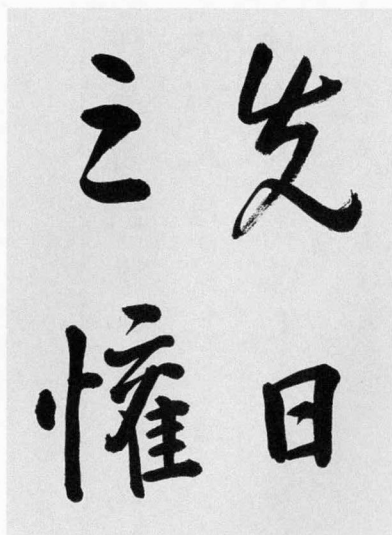 失日
之懽